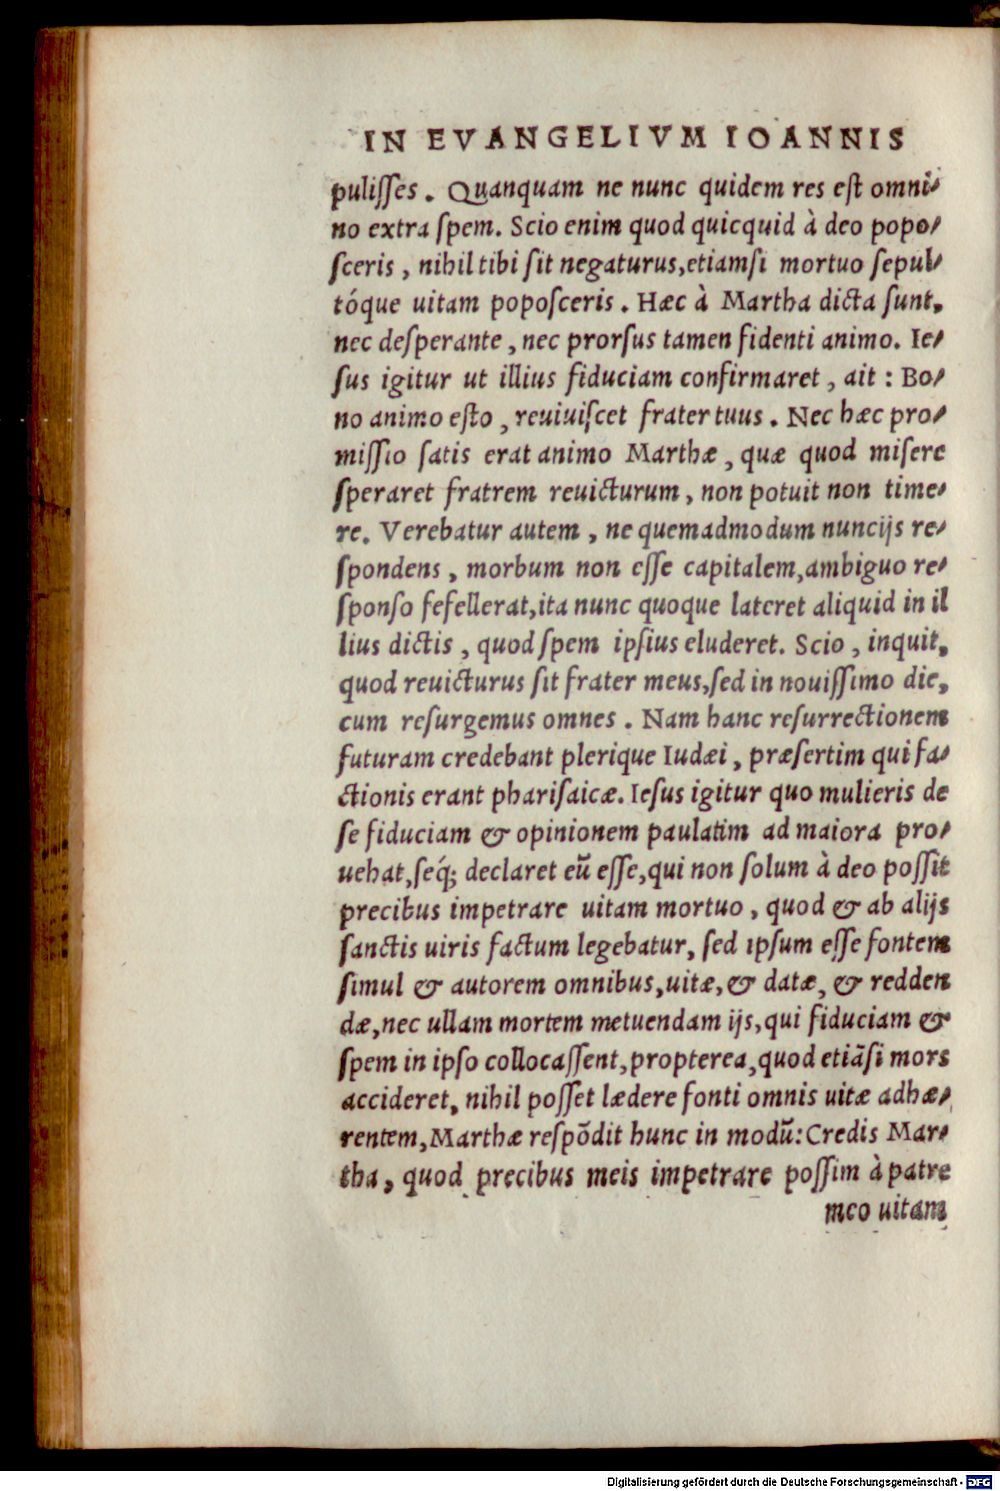 IN EVANGELIVM IOANNIS
pulisses. Quanquam ne nunc quidem res est omni-
no extra spem. Scio enim quod quicquid à deo popo-
sceris, nihil tibi sit negaturus, etiamsi mortuo sepul-
tóque uitam poposceris. Hæc à Martha dicta sunt,
nec desperante, nec prorsus tamen fidenti animo. Ie-
sus igitur ut illius fiduciam confirmaret, ait: Bo-
no animo esto, reuiuiscet frater tuus. Nec hæc pro-
missio satis erat animo Marthæ, quæ quod misere
speraret fratrem reuicturum, non potuit non time-
re. Verebatur autem, ne quemadmodum nuncijs re-
spondens, morbum non esse capitalem, ambiguo re-
sponso fefellerat, ita nunc quoque lateret aliquid in il
lius dictis, quod spem ipsius eluderet. Scio, inquit,
quod reuicturus sit frater meus, sed in nouissimo die,
cum resurgemus omnes. Nam hanc resurrectionem
futuram credebant plerique Iudæi, præsertim qui fa-
ctionis erant pharisaicæ. Iesus igitur quo mulieris de
se fiduciam & opinionem paulatim ad maiora pro-
uehat, seq́; declaret eũ esse, qui non solum à deo possit
precibus impetrare uitam mortuo, quod & ab alijs
sanctis uiris factum legebatur, sed ipsum esse fontem
simul & autorem omnibus, uitæ, & datæ, & redden
dæ, nec ullam mortem metuendam ijs, qui fiduciam &
spem in ipso collocassent, propterea, quod etiãsi mors
accideret, nihil posset lædere fonti omnis uitæ adhæ-
rentem, Marthæ respõdit hunc in modũ: Credis Mar-
tha, quod precibus meis impetrare possim à patre
meo uitam
Digitalisierung gefördert durch die Deutsche Forschungsgemeinschaft - DFG